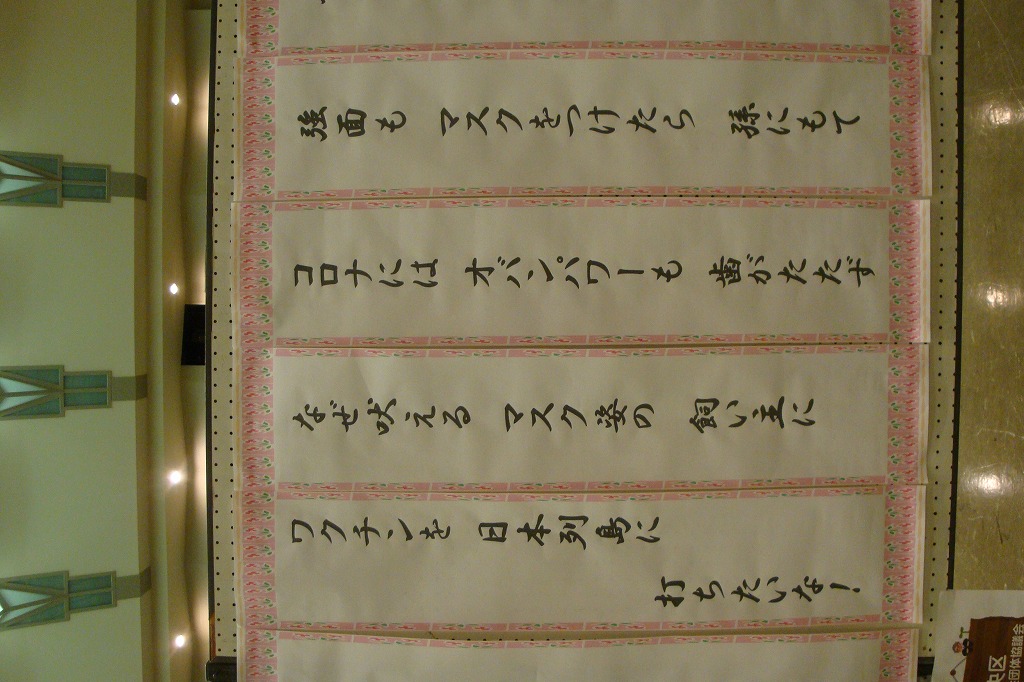 強面も　マスクをつけたら　孫にもて
コロナには　オバンパワーも　歯がたたず
なぜ吠える　マスク姿の　飼い主に
ワクチンを　日本列島に
打ちたいな！
央区
団体協議会